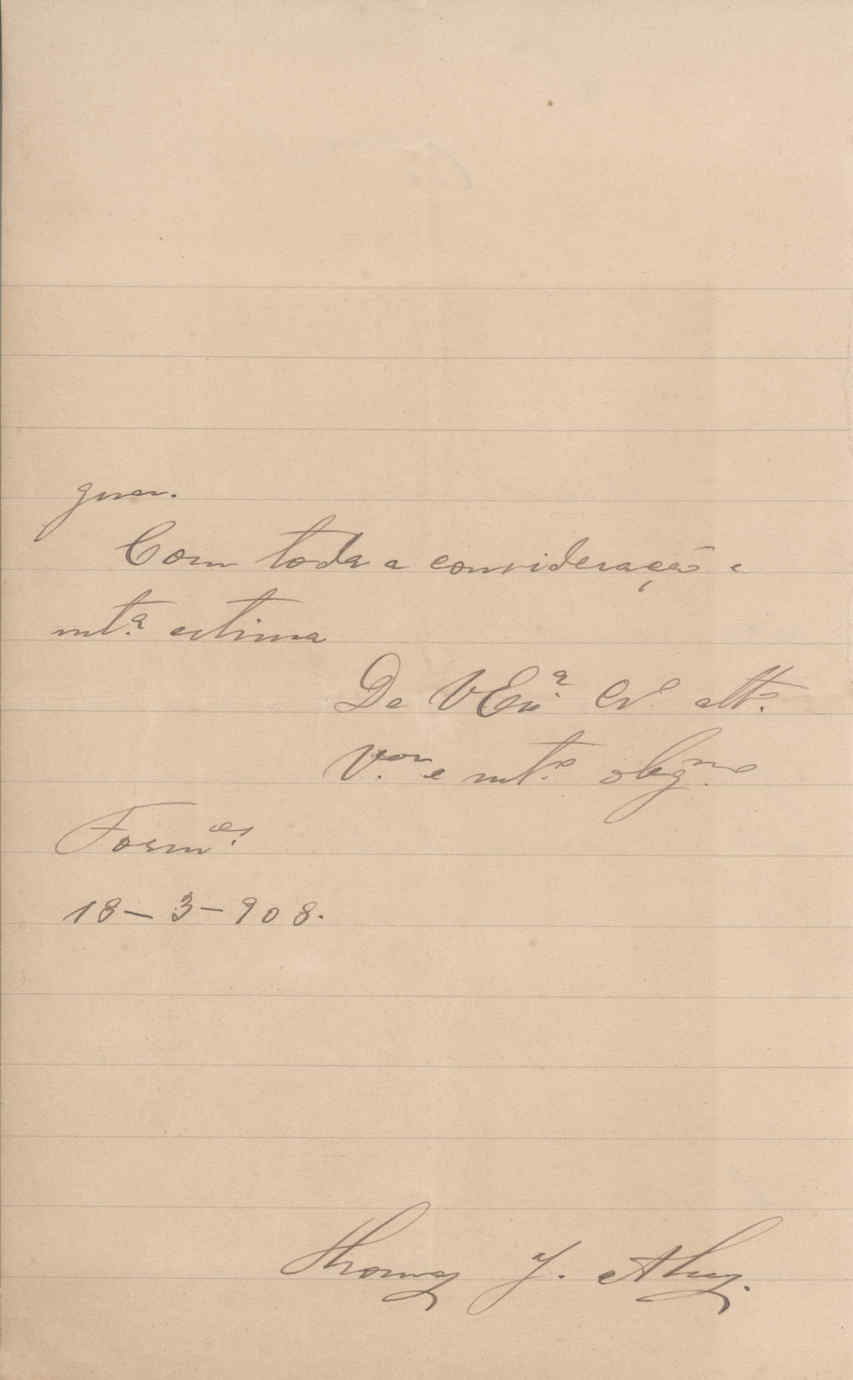 Com toda a consideração e
mt.ª estima
De V Exª Cr.º att.º
V.or e mt.º obrg.mo
Form.es
18-3-908.
Thomaz J. Alvez.